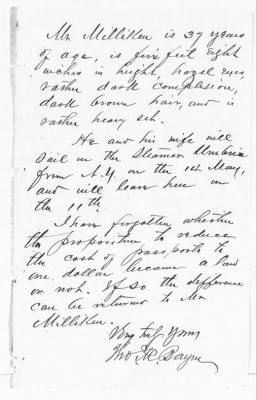 Mr Milliken is 37 years
of age, is five feet eight
inches in height, hazel eyes,
rather dark complexion,
dark brown hair, and is
rather heavy set.
He and his wife will
sail on the Steamer Umbria
from N.Y. on the 12th May,
and will leave here on
the 11th.
I have forgotten whether
the proposition to reduce
the cost of passports to
one dollar became a law
or not. If so the difference
can be returned to Mr
Milliken.
Very truly Yours
Thos. R. Bayne